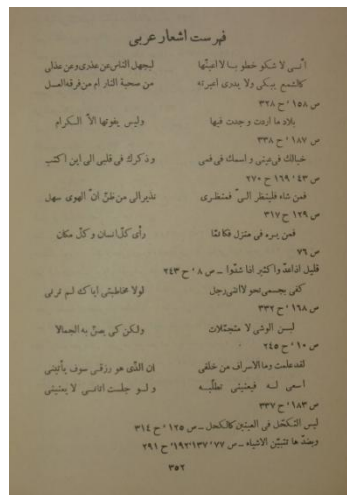 فهرست اشعار عربی
انّی لاشکو خطوبا لا اعیّنها لیجهل الناس عن عذری وعن عذلی
کالشمع یبکی ولا یدری اعبرته من صحبة النار ام من فرقة العسل
ص ۱۵۸ ' ح ۳۲۸
بلاد ما اردت وجدت فیها ولیس یفوتها الاّ الکرام
ص ۱۸۷ ' ح ۳۳۸
خیالک فی عینی و اسمک فی فمی وذکرک فی قلبی الی این اکتب
ص ۴۳ ' ۱۶۹ ح ۲۷۰
فمن شاء فلینظر الیّ فمنظری نذیر الی من ظنّ انّ الهوی سهل
ص ۱۲۹ ح ۳۱۷
فمن یره فی منزل فکانّما رأی کلّ انسان و کلّ مکان
ص ۷۶
قلیل اذا عدّوا کثیر اذا شدّوا ــ ص ۸ ' ح ۲۴۳
کفی بجسمی نحولا اننی رجل لولا مخاطبتی ایاک لم ترنی
ص ۱۶۸ ' ح ۳۳۲
لبسن الوشی لا متجمّلات ولکن کی یصنّ به الجمالا
ص ۱۰ ' ح ۲۴۵
لقد علمت وما الاسراف من خلقی ان الّذی هو رزقی سوف یأتینی
اسعی له فیعنینی تطلّبه و لو جلست اتانی لا یعنینی
ص ۱۸۳ ' ح ۳۳۷
لیس التکحّل فی العینین کالکحل ــ ص ۱۲۵ ' ح ۳۱۴
وبضدّها تتبیّن الاشیاء ــ ص ۷۷ ' ۱۳۷ ' ۱۹۲ ' ح ۲۹۱
۳۵۲